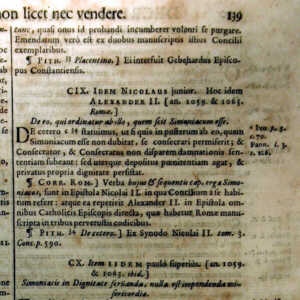 non licet nec vendere. 139
tunc, quasi onus id probandi incumberet volenti se purgare.
Emendatum verò est ex duobus manuscriptis istius Concilii
exemplaribus.
¶ PITH. Placentino.] Et interfuit Gebehardus Episco-
pus Constantiensis.
CIX. IDEM NICOLAUS junior. Hoc idem
ALEXANDER II. [an. 1059. & 1063.
Romæ.]
De eo, qui ordinatur ab illo, quem scit Simoniacum esse.
DE cetero statuimus, ut si quis in posterum ab eo, quem
Simoniacum esse non dubitat, se consecrari permiserit; &
Consecrator & Consecratus non disparem damnationis sen-
tentiam subeant: sed uterque depositus pœnitentiam agat, &
privatus propria dignitate persistat.
¶ CORR. ROM.] Verba hujus & sequentis cap. erga Simo-
niacos, sunt in Epistola Nicolai II. in qua Concilium se habi-
tum refert: atque ea repetivit Alexander II. in Epistola om-
nibus Catholicis Episcopis directa, quæ habetur Romæ manu-
scripta in tribus pervetustis codicibus.
¶ PITH. De cetero.] Ex Synodo Nicolai II. tom. 3.
Conc. p. 590.
CX. Item EIDEM paulò superiùs. [an. 1059.
& 1063. ibid.]
Simoniacis in Dignitate servanda, nulla est impendenda mi-
sericordia.